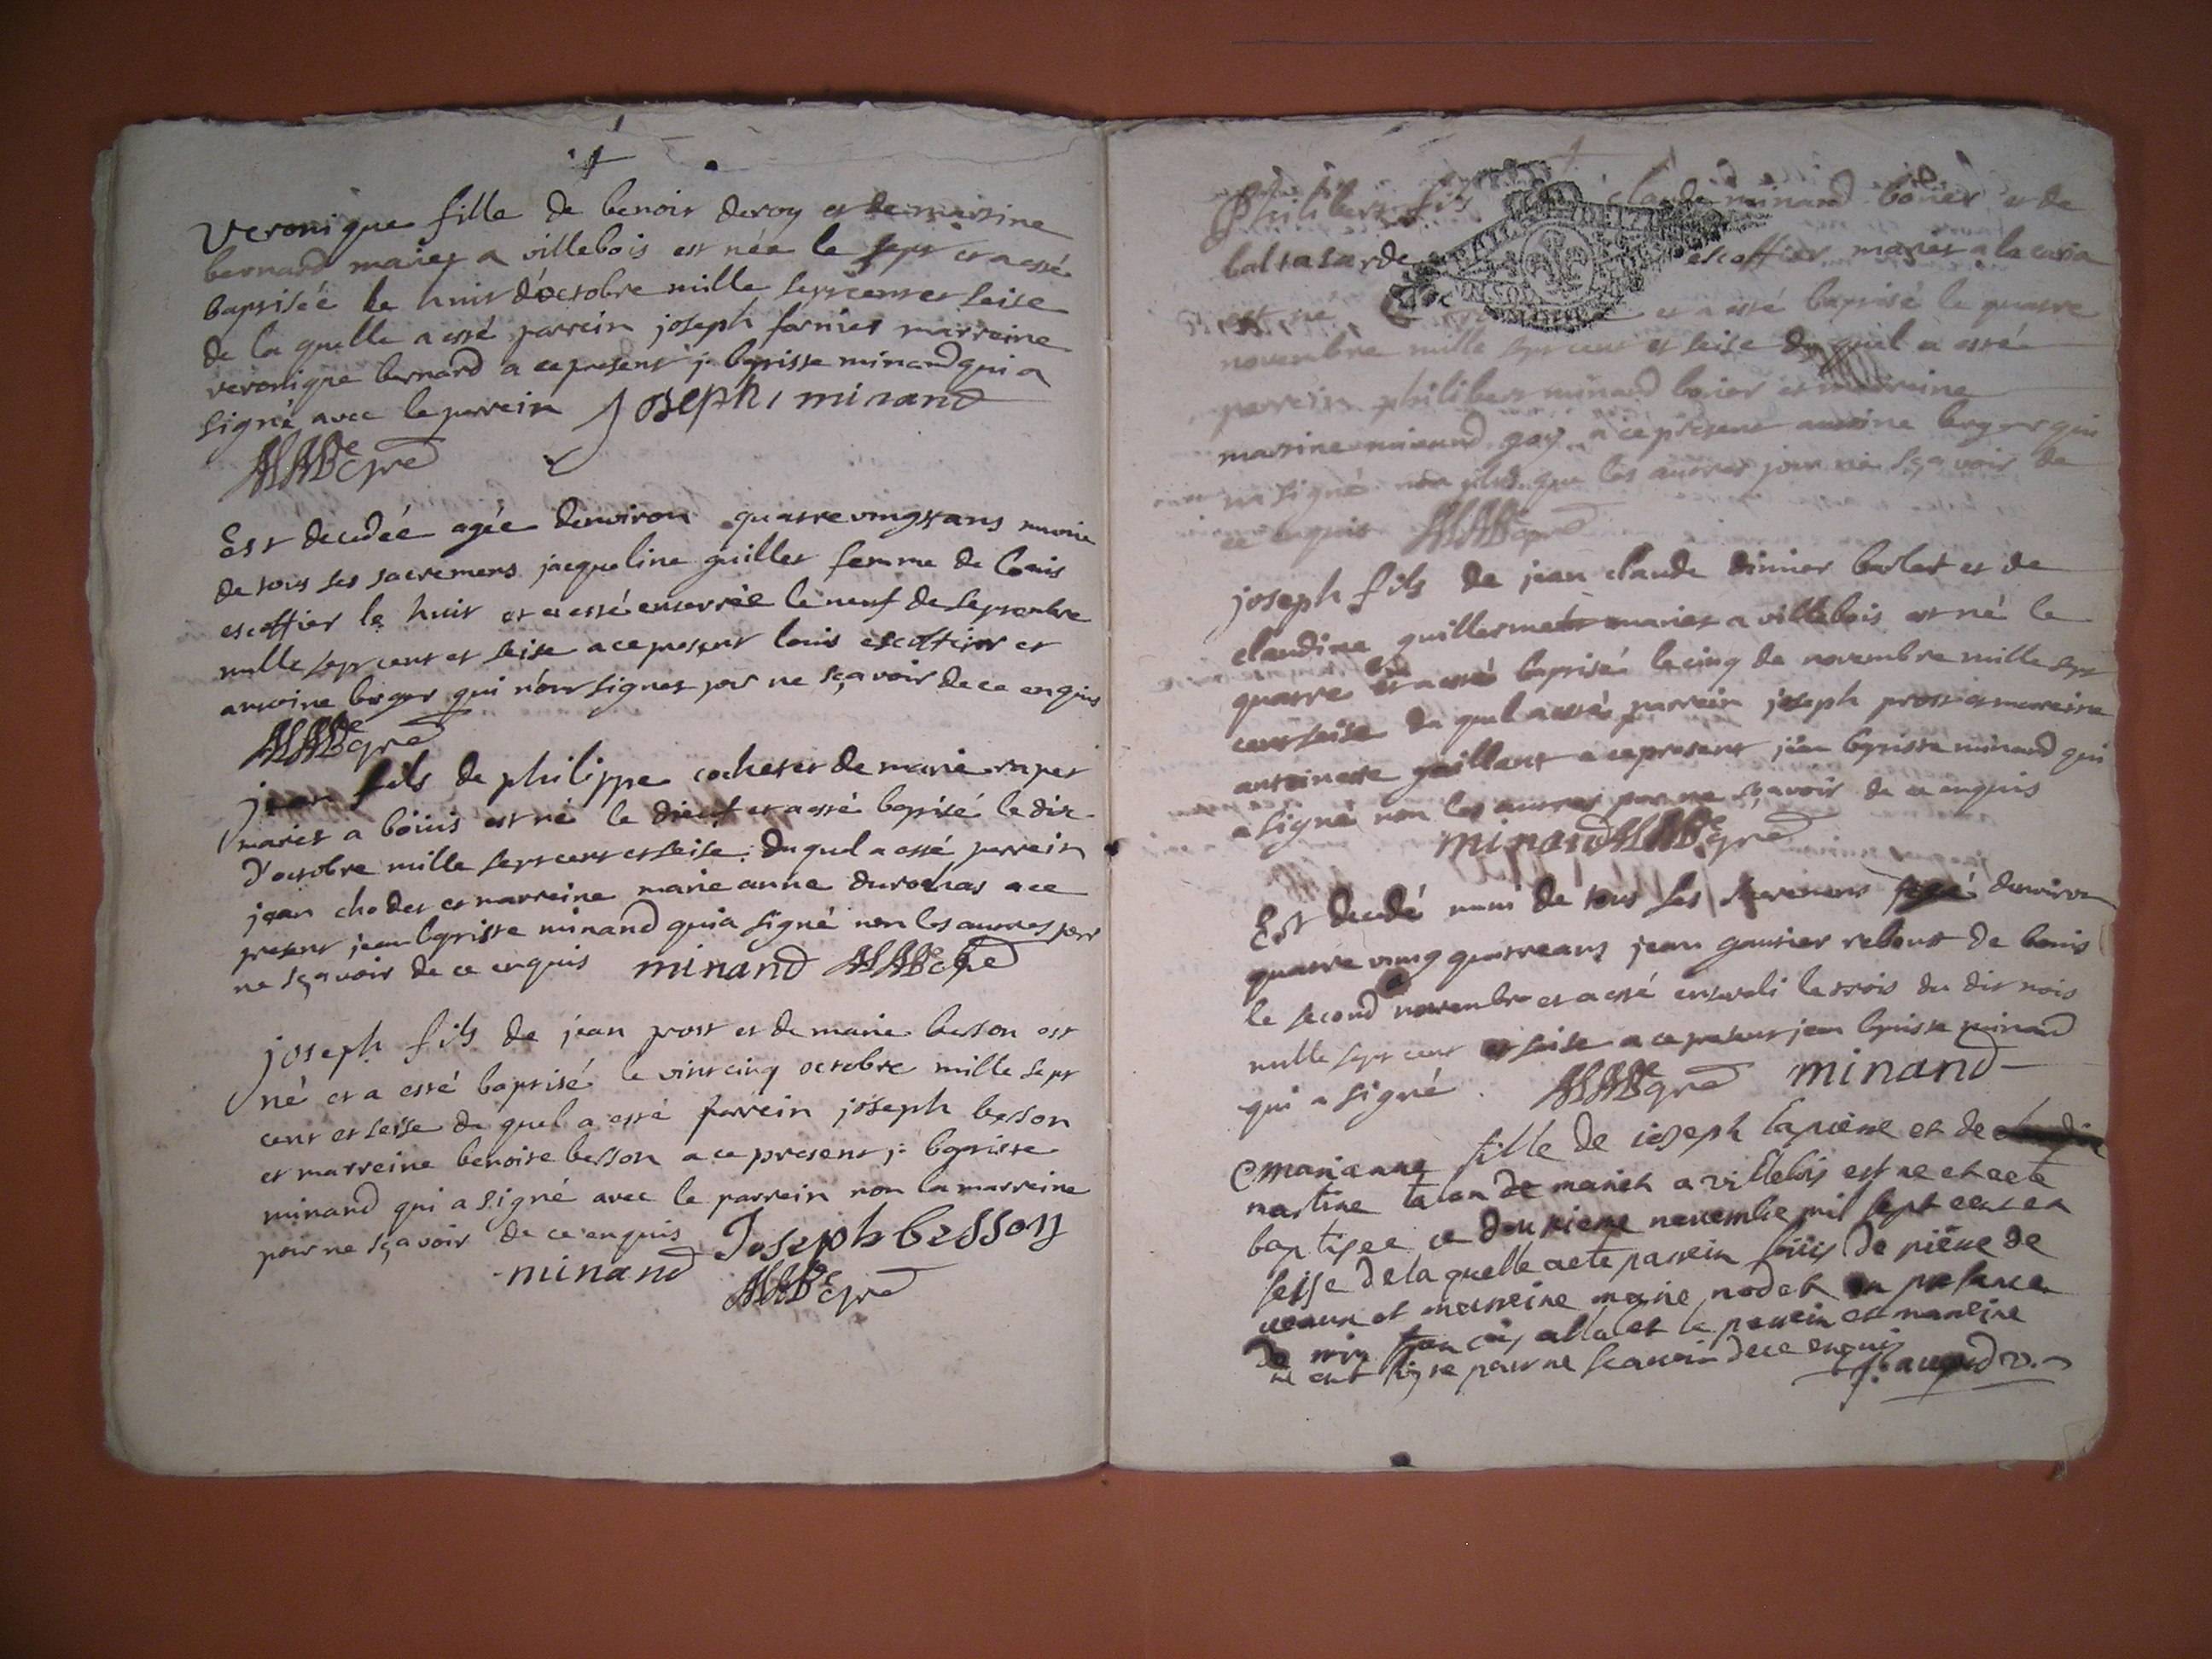 Veronique fille de benoit deroy et de martine
bernard mariez a villebois est née le sept et a esté
baptisée le huit d'octobre mille sept cent et seise
de la quelle a esté parrein joseph fornier marreine
veronique bernard a ce present j. baptiste minand qui a
signé avec le parrein Joseph minand
Est decedée agée denviron quatre vingt ans munie
de tous ses sacremens jacqueline guillet femme de louis
escoffier le huit et a esté enterrée le neuf de septembre
mille sept cent et seise a ce present louis escoffier et
antoine berger qui n'ont signer por ne sçavoir de ce enquis
jean fils de philippe cochet et de marie
mariez a bouis est né le et a esté baptisé le dix
d'octobre mille sept cent et seise. du quel a esté parrein
jean chodet et marreine marie anne a ce
present jean baptiste minand qui a signé non les autres por
ne sçavoir de ce enquis minand
joseph fils de jean prost et de marie besson est
né et a esté baptisé le vint cinq octobre mille sept
cent et seise du quel a esté parrein joseph besson
et marreine benoite besson a ce present j. baptiste
minand qui a signé avec le parrein non la marreine
pour ne sçavoir de ce enquis Joseph besson
minand
Philibert fils claude minand et de
baltasarde escoffier mariez a la
est né et a esté baptisé le quatre
novembre mille sept cent et seise du quel a esté
parrein philibert minand et marreine
martine minand a ce present antoine berger qui
na signé non plus que les autres pour ne sçavoir de
ce enquis
joseph fils de jean claude et de
claudine guillermet mariez a villebois est né le
quatre et a esté baptisé le cinq de novembre mille sept
cent seise du quel a esté parrein joseph prost et marreine
antoinette a ce present jean baptiste minand qui
a signé non les autres por ne sçavoir de ce enquis
minand
Est decedé muni de tous ses sacremens agé denviron
quatre ving quatre ans jean gautier de bouis
le second novembre et a esté enseveli le trois du dit mois
mille sept cent et seise a ce present jean baptiste minand
qui a signé. minand
marianne fille de joseph lapierre et de
martine mariez a villebois est ne et a ete
baptisee ce douzieme novembre mil sept cent et
seise de la quelle a ete parrein de
et marreine marie nodet en presance
de francois et le parrein et marreine
ne ont signe pour ne scavoir de ce enquis